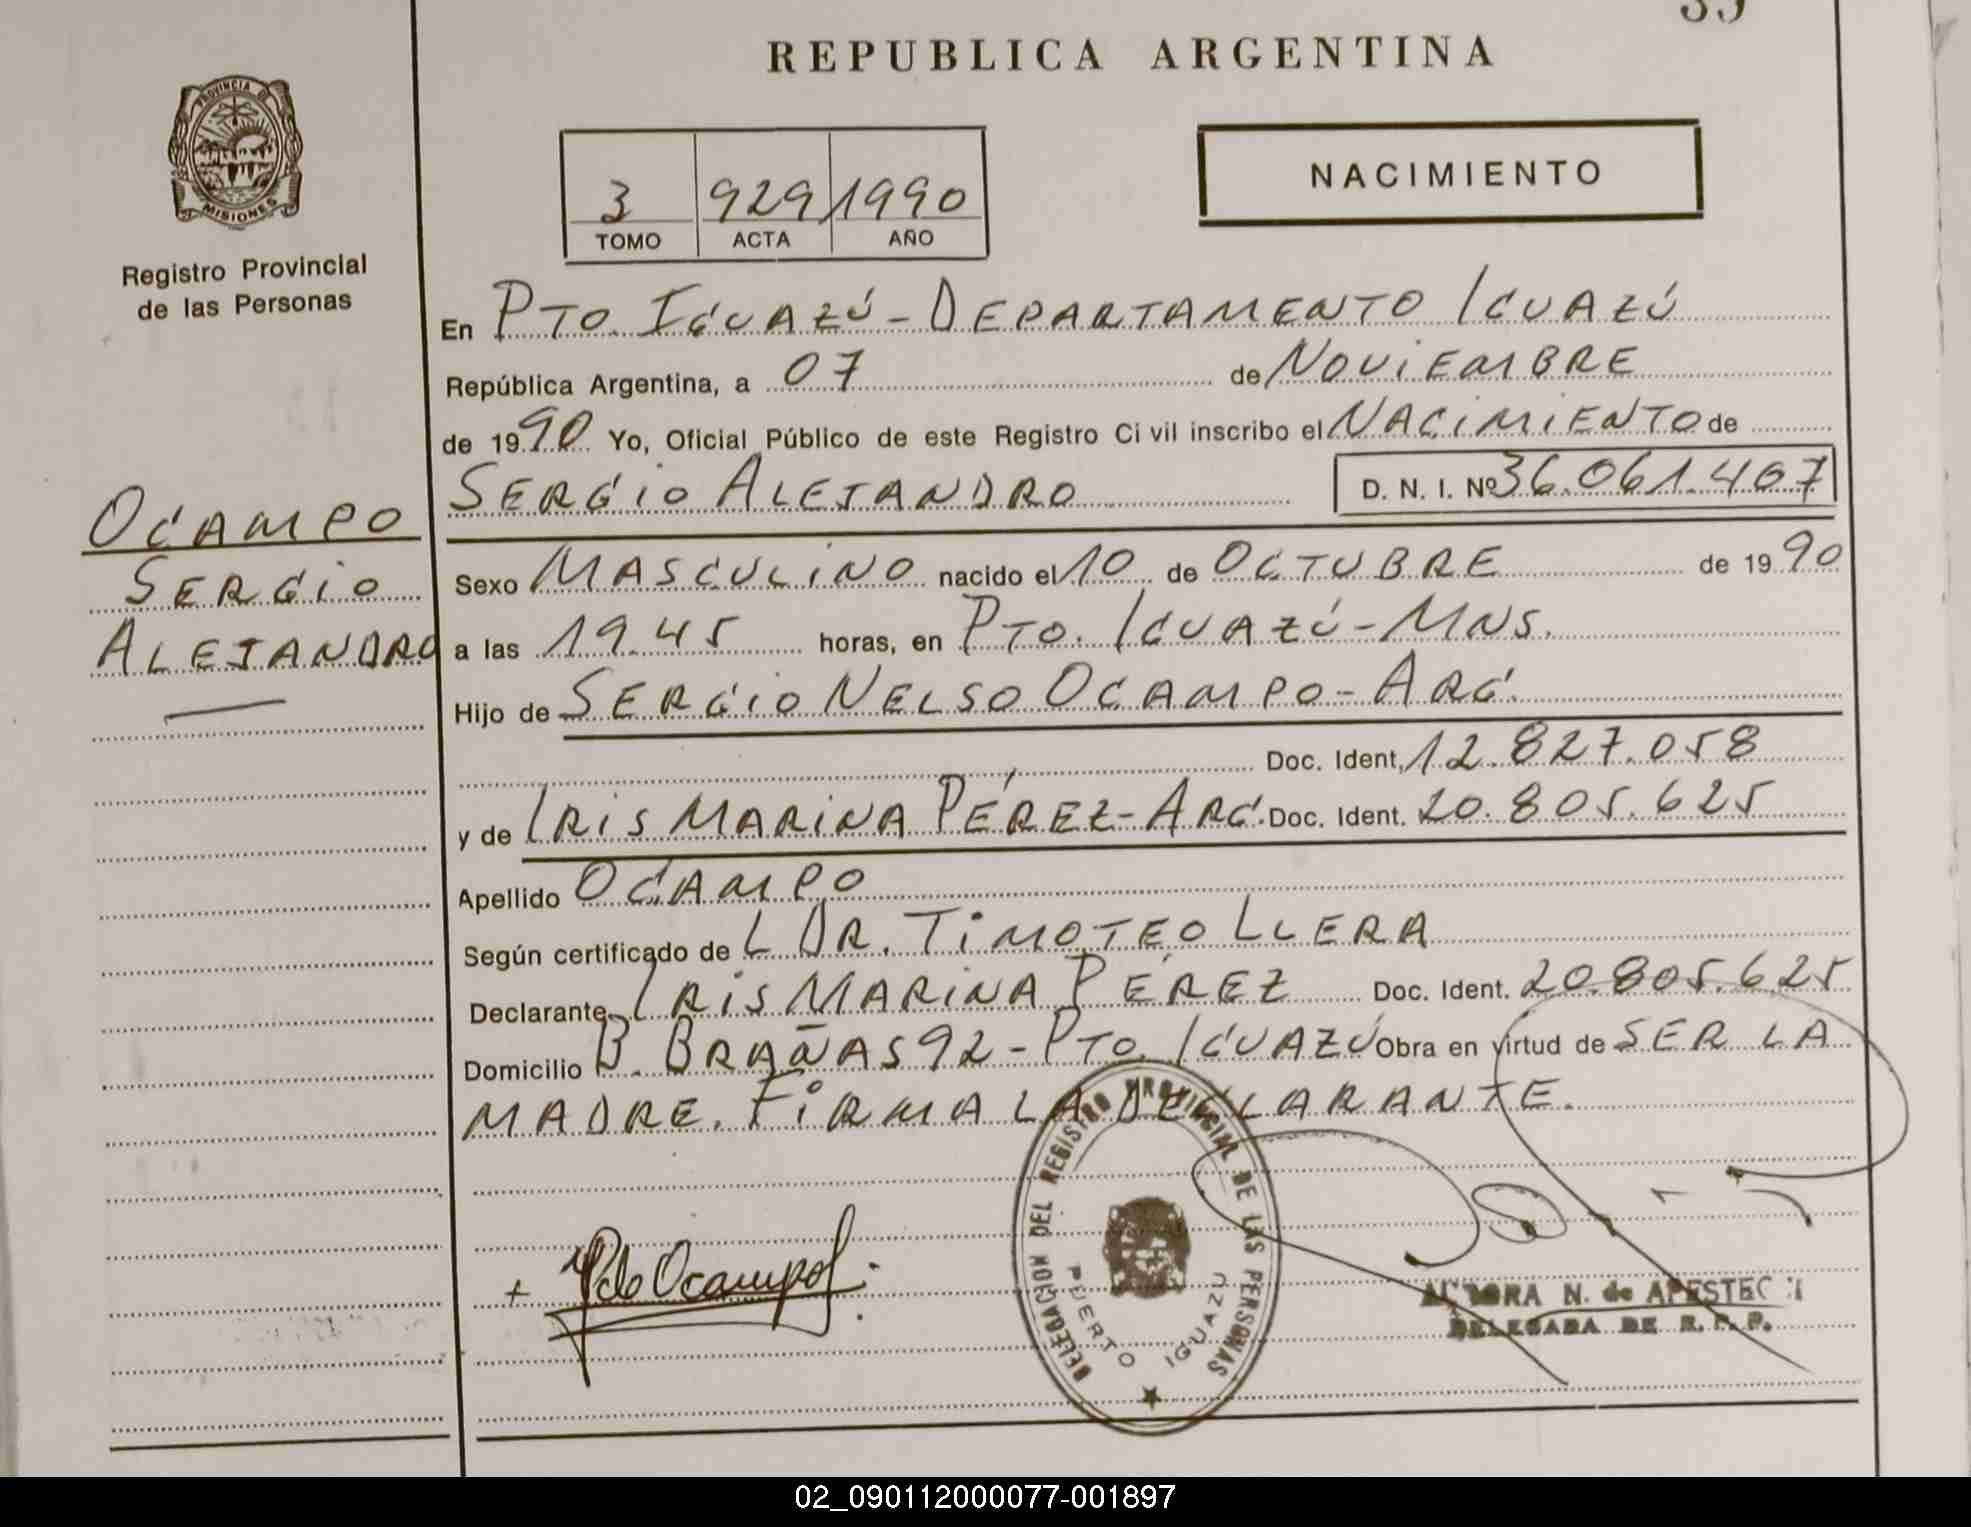 REPUBLICA ARGENTINA
PROVINCIA DE
MISIONES
Registro Provincial
de las Personas
3 929 1990
TOMO ACTA AÑO
NACIMIENTO
En PTO. IGUAZÚ - DEPARTAMENTO IGUAZÚ
República Argentina, a 07 de NOVIEMBRE
de 1990 Yo, Oficial Público de este Registro Civil inscribo el NACIMIENTO de
SERGIO ALEJANDRO D. N. I. Nº 36.061.467
OCAMPO
SERGIO
ALEJANDRO
Sexo MASCULINO nacido el 10 de OCTUBRE de 1990
a las 19.45 horas, en PTO. IGUAZÚ - MNS.
Hijo de SERGIO NELSO OCAMPO - ARG.
Doc. Ident. 12.827.058
y de IRIS MARINA PÉREZ - ARG. Doc. Ident. 20.805.625
Apellido OCAMPO
Según certificado de L DR. TIMOTEO LLERA
Declarante IRIS MARINA PÉREZ Doc. Ident. 20.805.625
Domicilio B. BRAÑAS 92 - PTO. IGUAZÚ Obra en virtud de SER LA
MADRE. FIRMA LA DECLARANTE.
+ P de Ocampo
DELEGACION DEL REGISTRO PROVINCIAL DE LAS PERSONAS
PUERTO IGUAZU
N. de
DELEGADA DE R. P. P.
02_090112000077-001897